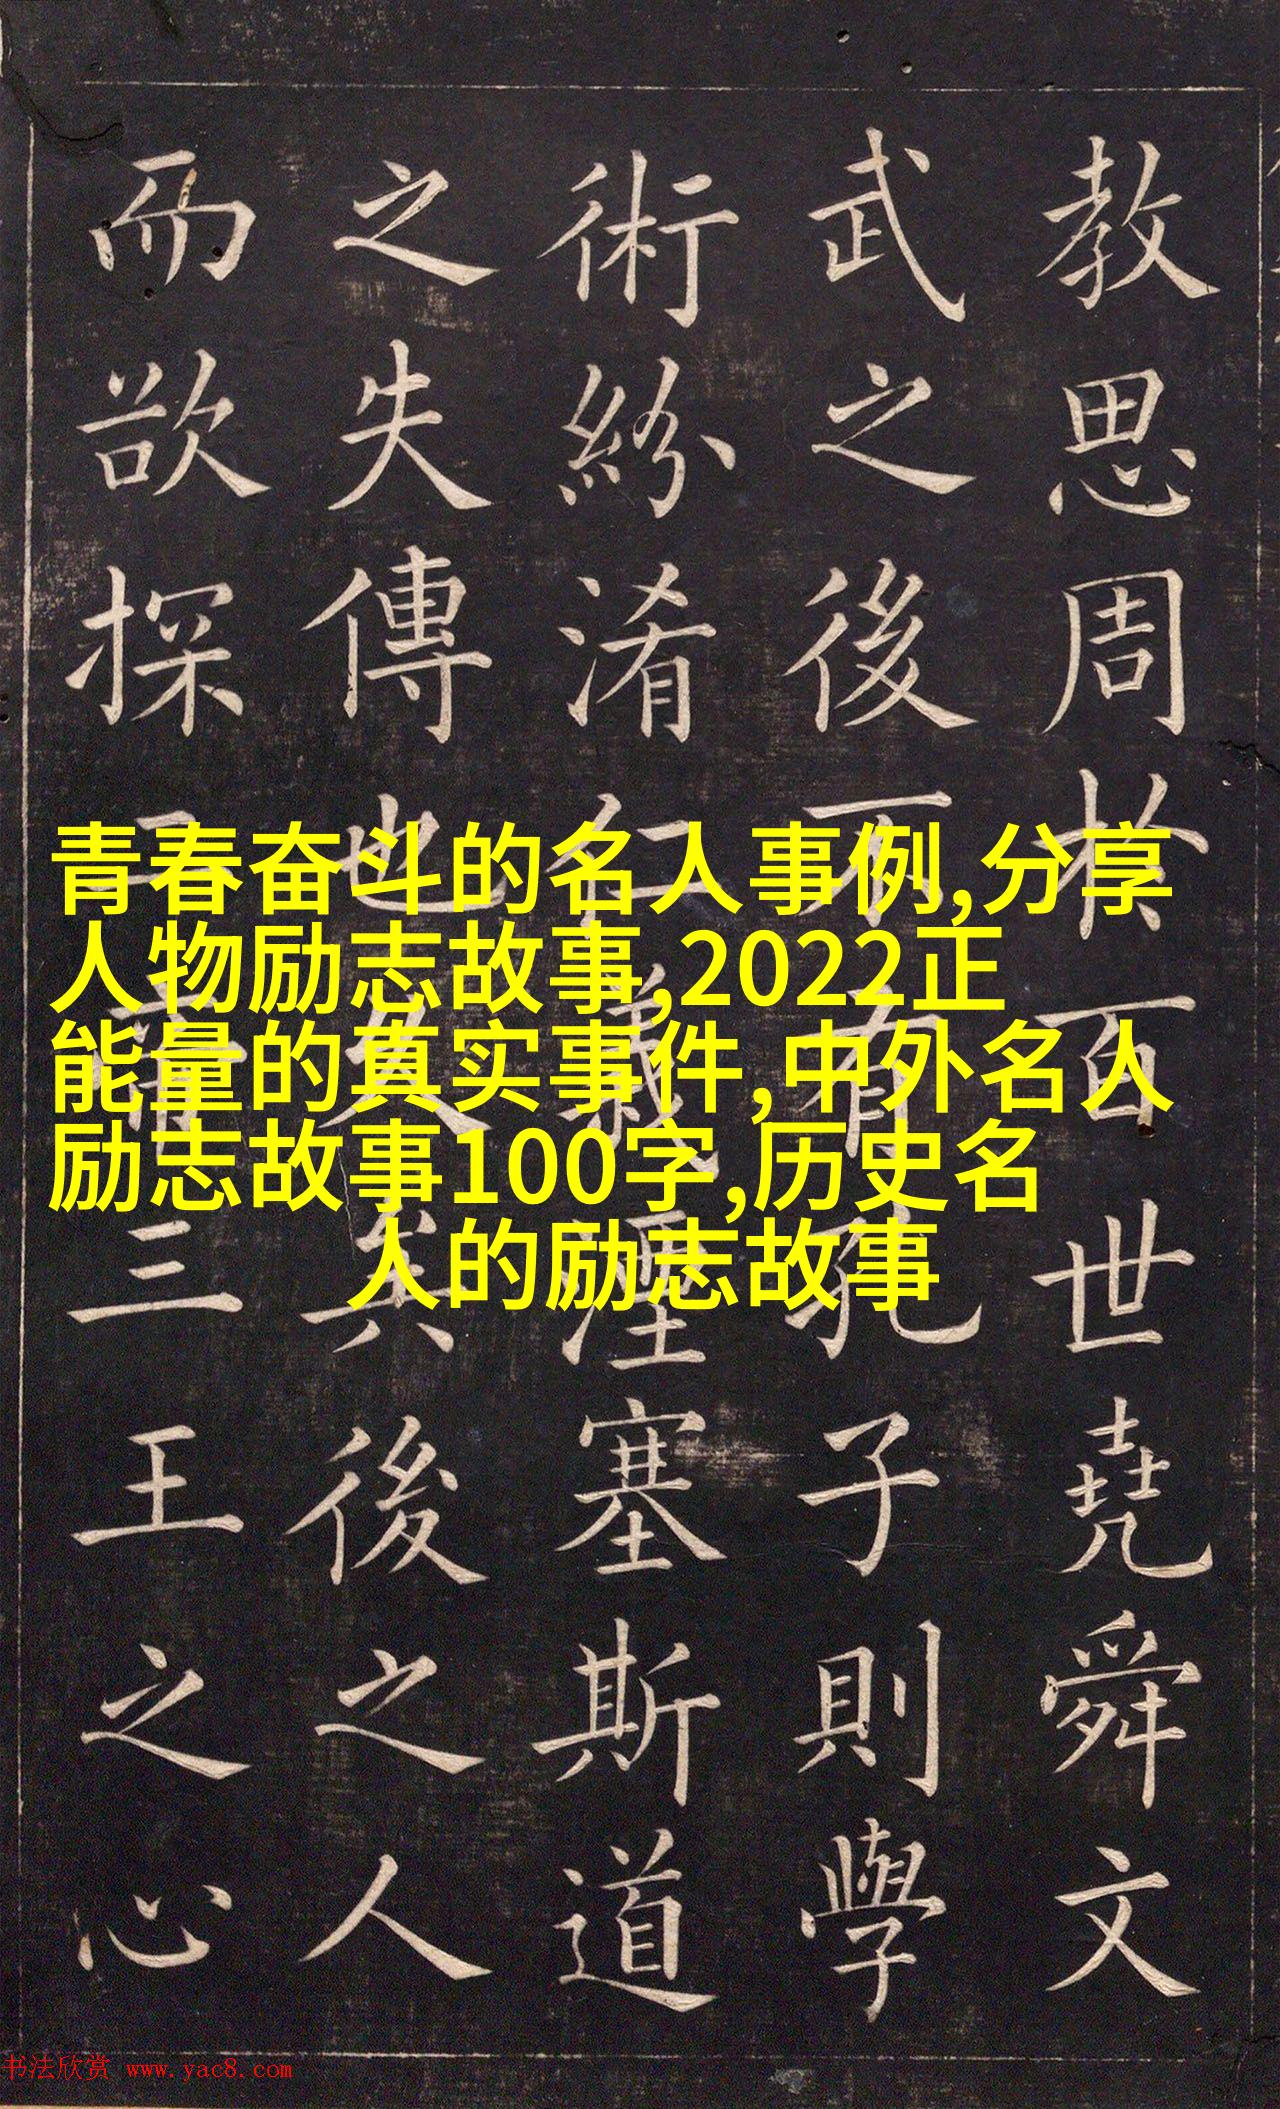 教思周於百世堯舜文
武之後不有孔子則學
術紛淆仁義湮塞斯道
之失傳也久矣後之人
而欲探二帝三王之心
青春奋斗的名人事例,分享
人物励志故事,2022正
能量的真实事件,中外名人
励志故事100字,历史名
人的励志故事
书法欣赏 www.yac8.com